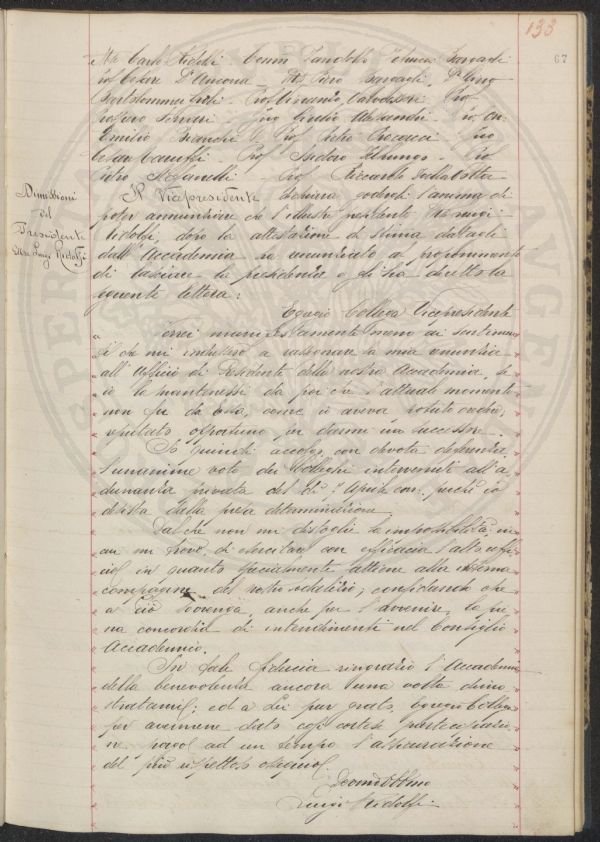 133
67
Mse Carlo Ridolfi Comm Pandolfo
Cesare D'Ancona Mse Piero Bargagli
Bartolommeo Prof Vincenzo Valvassori Prof
Ing Giulio Alessandri
Emilio Bianchi Prof Pietro
Cesare Prof Isidoro Prof
Pietro Stefanelli Prof Riccardo
Dimissioni
del
Presidente
Mse Luigi Ridolfi
Il Vicepresidente dichiara l'animo di
poter annunziare che l'illustre presidente Mse Luigi
Ridolfi, dopo la attestazione di stima datagli
dall'Accademia ha rinunziato al proponimento
di lasciare la presidenza e gli ha diretto la
seguente lettera:
Egregio Collega Vicepresidente
Verrei manifestamente meno ai sentimen
ti che mi a la mia rinunzia
all'Ufficio di Presidente della nostra Accademia, se
io la mantenessi da poi che l'attuale momento
non fu da essa, come io aveva
reputato opportuno per darmi un successore.
Io quindi accolgo con devota deferenza
l'unanime voto dei Colleghi intervenuti all'a
dunanza privata del dì 7 Aprile corr. perchè io
desista dalla presa determinazione.
Dal che non mi distoglie la impossibilità in
cui mi trovo di esercitare con efficacia l'alto uffi
cio, in quanto specialmente attiene alla interna
compagine del nostro sodalizio; confidando che
a ciò sovvenga, anche per l'avvenire, la pie
na concordia di intendimenti nel Consiglio
Accademico.
In tale fiducia ringrazio l'Accademia
della benevolenza ancora una volta dimo
stratami; ed a Lei pur grato, egregio Collega
per avermene dato così cortese partecipazio
ne, porgo ad un tempo l'assicurazione
del più rispettoso ossequio.
Devmo Obbmo
Luigi Ridolfi